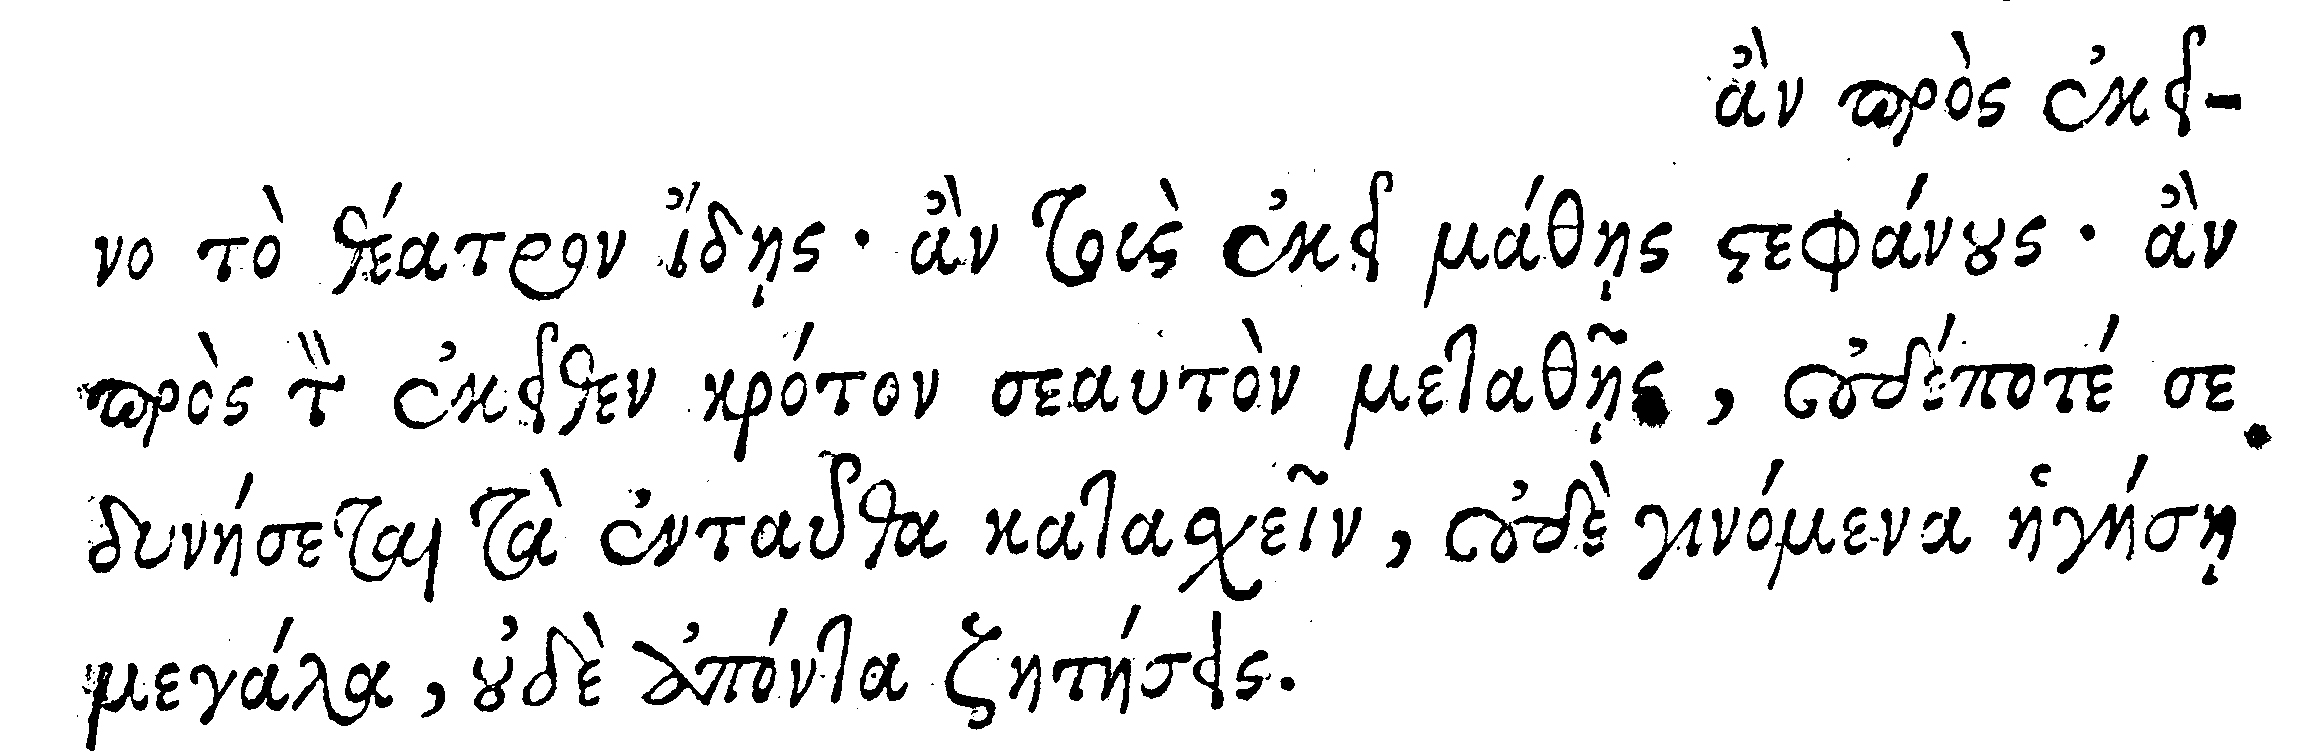 ἂν πρὸς ἐκεῖ-
νο τὸ θέατρον ἴδῃς· ἂν τοὺς ἐκεῖ μάθῃς στεφάνους· ἂν
πρὸς τὸν ἐκεῖθεν κρότον σεαυτὸν μεταθῇς, οὐδέποτέ σε
δυνήσεται τὰ ἐνταῦθα κατασχεῖν, οὐδὲ γινόμενα ἡγήσῃ
μεγάλα, οὐδὲ ἀπόντα ζητήσεις.